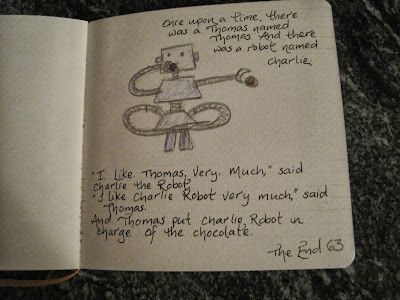 Once upon a time, there
was a Thomas named
Thomas. And there
was a robot named
Charlie.
"I Like. Thomas. Very. Much," said
Charlie the Robot.
"I like Charlie Robot very much," said
Thomas.
And Thomas put Charlie Robot in
charge of the chocolate.
The End 63